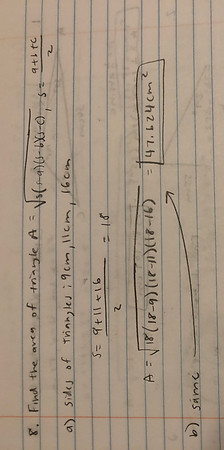 8. Find the area of triangle A = √s(s-a)(s-b)(s-c), s = a+b+c/2
a) sides of triangles: 9cm, 11cm, 16cm
s = 9+11+16/2 = 18
A = √18(18-9)(18-11)(18-16) = 47.624cm²
b) same